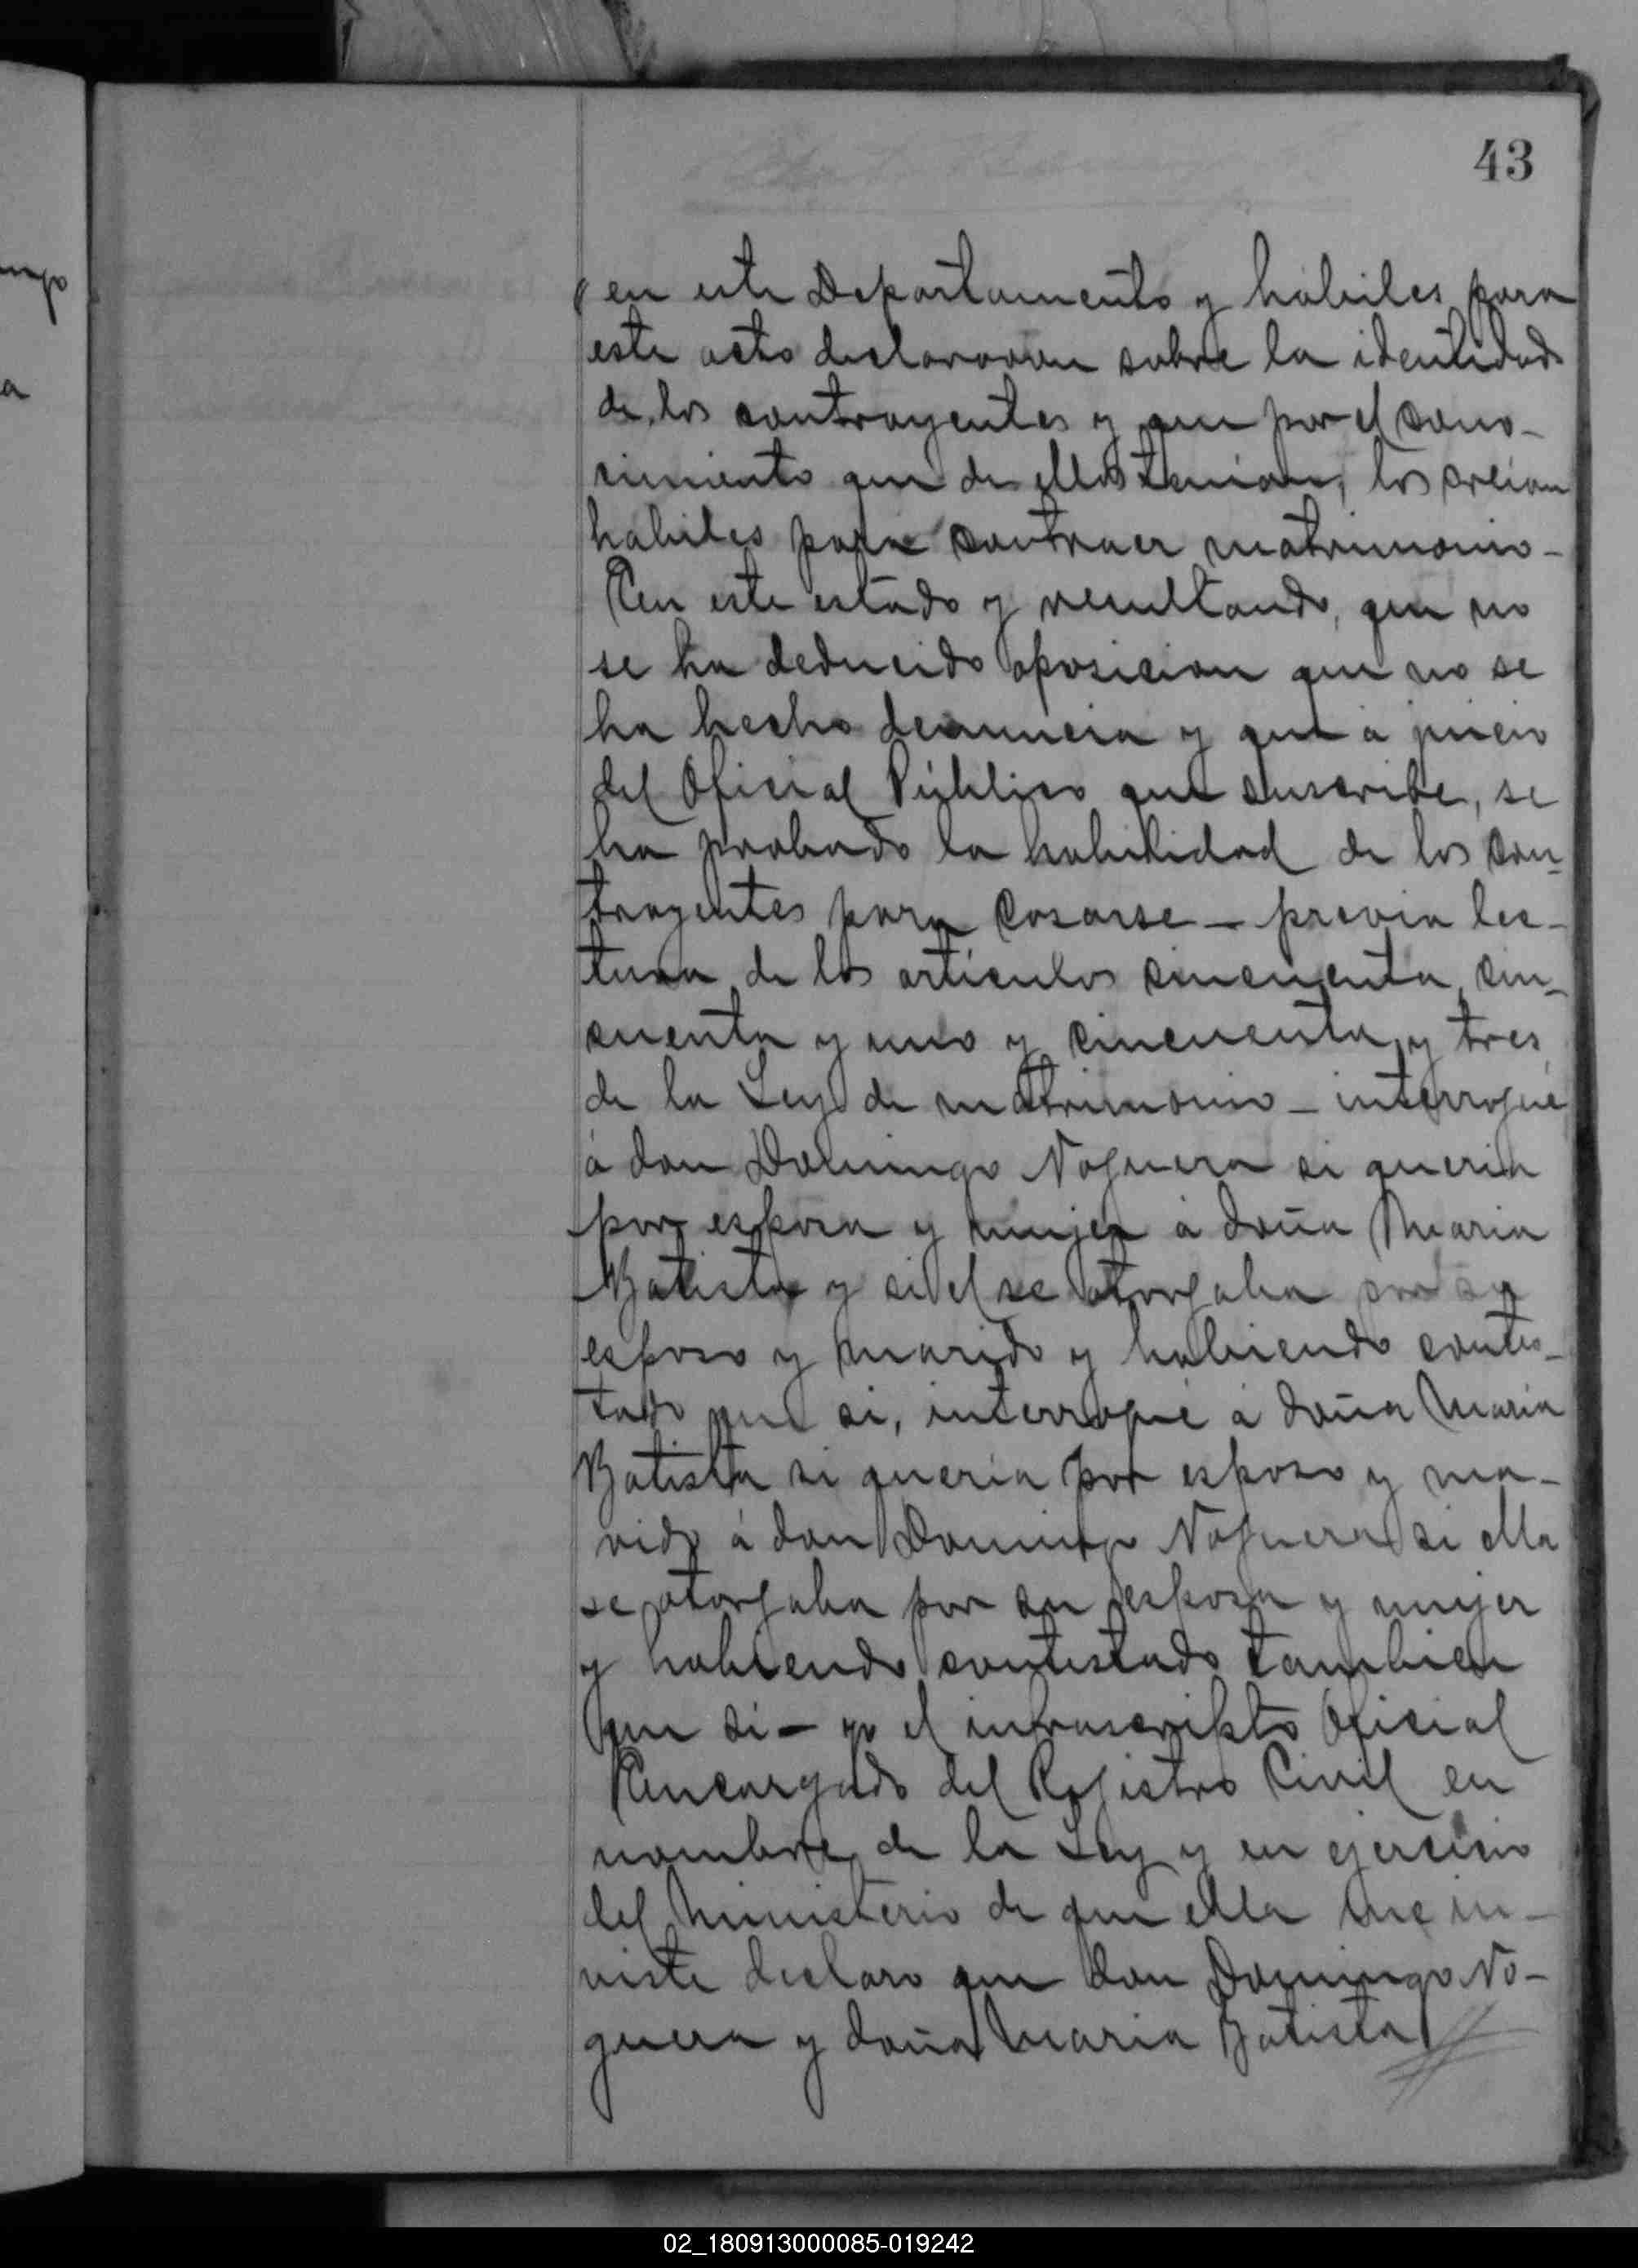 43
en este Departamento y hábiles para
este acto declararon sobre la identidad
de los contrayentes y que por el cono-
cimiento que de ellos tenían, los creían
habiles para contraer matrimonio-
En este estado y resultando, que no
se ha deducido oposicion que no se
ha hecho denuncia y que a juicio
del Oficial Público que suscribe, se
ha probado la habilidad de los con-
trayentes para casarse - previa lec-
tura de los artículos cincuenta, cin-
cuenta y uno y cincuenta y tres
de la Ley de matrimonio - interrogué
á don Domingo Noguera si queria
por esposa y mujer á doña Maria
Batista y si el se otorgaba por su
esposo y marido y habiendo contes-
tado que si, interrogué á doña Maria
Batista si queria por esposo y ma-
rido á don Domingo Noguera si ella
se otorgaba por su esposa y mujer
y habiendo contestado tambien
que si - yo el infrascripto Oficial
Encargado del Registro Civil en
nombre de la Ley y en ejercicio
del ministerio de que ella me in-
viste declaro que don Domingo No-
guera y doña Maria Batista
ngo
a
02_180913000085-019242